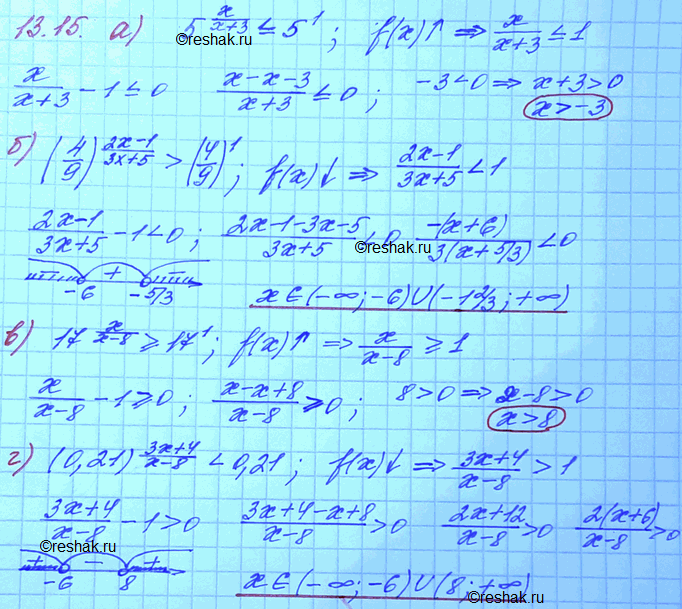 13.15. а) 5^(x/(x+3)) ≤ 5^1 ; f(x)↑ ⇒ x/(x+3) ≤ 1
©reshak.ru
x/(x+3) − 1 ≤ 0 (x−x−3)/(x+3) ≤ 0 ; −3 < 0 ⇒ x+3 > 0
x > −3
б) (4/9)^((2x−1)/(3x+5)) > (4/9)^1 ; f(x)↓ ⇒ (2x−1)/(3x+5) < 1
(2x−1)/(3x+5) − 1 < 0 ; (2x−1−3x−5)/(3x+5) < 0 −(x+6)/(3(x+5/3)) < 0
©reshak.ru
− + −
−6 −5/3 x∈(−∞;−6)∪(−1 2/3;+∞)
в) 17^(x/(x−8)) ≥ 17^1 ; f(x)↑ ⇒ x/(x−8) ≥ 1
x/(x−8) − 1 ≥ 0 ; (x−x+8)/(x−8) ≥ 0 ; 8 > 0 ⇒ x−8 > 0
x > 8
г) (0,21)^((3x+4)/(x−8)) < 0,21 ; f(x)↓ ⇒ (3x+4)/(x−8) > 1
(3x+4)/(x−8) − 1 > 0 (3x+4−x+8)/(x−8) > 0 (2x+12)/(x−8) > 0 2(x+6)/(x−8) > 0
©reshak.ru ©reshak.ru
+ − +
−6 8 x∈(−∞;−6)∪(8;+∞)